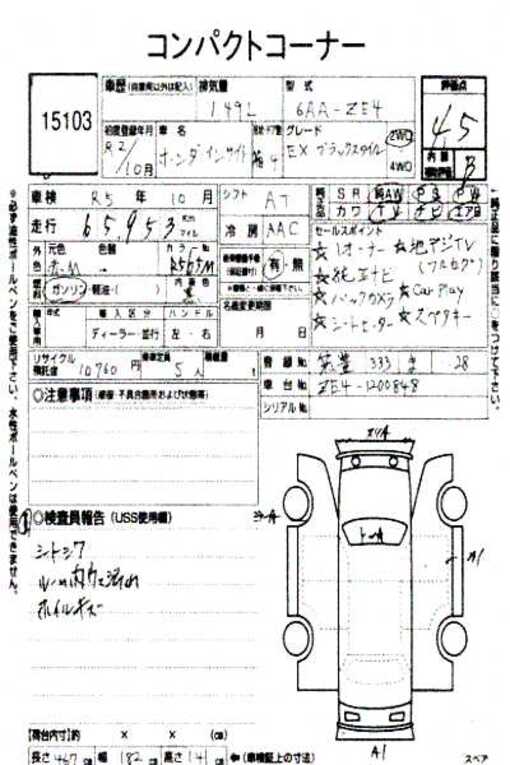 コンパクトコーナー
15103
車歴 (自家用以外は記入) 排気量 型式 評価点
1.49L 6AA-ZE4 4.5
初度登録年月 車名 グレード
R2/10月 ホンダ インサイト EX ブラックスタイル 2WD 4WD
B
車検 R5年10月 シフト AT 純正品 SR 純AW PS PW
走行 65,953 km マイル 冷房 AAC カワ ナビ エアB
外 元色 色替 カラーNo セールスポイント
有・無
☆1オーナー ☆地デジTV (フルセグ)
☆純正ナビ
☆バックカメラ ☆Car Play
☆シートヒーター ☆スペアキー
燃料 ガソリン・軽油・( ) 内装色
輸入車用 年式 輸入区分 ハンドル
ディーラー・並行 左・右
名義変更期限
月 日
リサイクル預託金 10760円 乗車定員 5人 積載量 t
登録No 筑豊 333 ま 28
車台No ZE4-1200848
シリアルNo
◎注意事項 (修復・不具合箇所および状態等)
◎検査員報告 (USS使用欄)
シートシワ
ルーム内ウス汚れ
ホイルキズ
A1
A1
【荷台内寸】 × × (cm)
長さ 467 cm 幅 182 cm 高さ 141 cm ←(車検証上の寸法)
スペア
※必ず油性ボールペンをご使用下さい。水性ボールペンは使用できません。